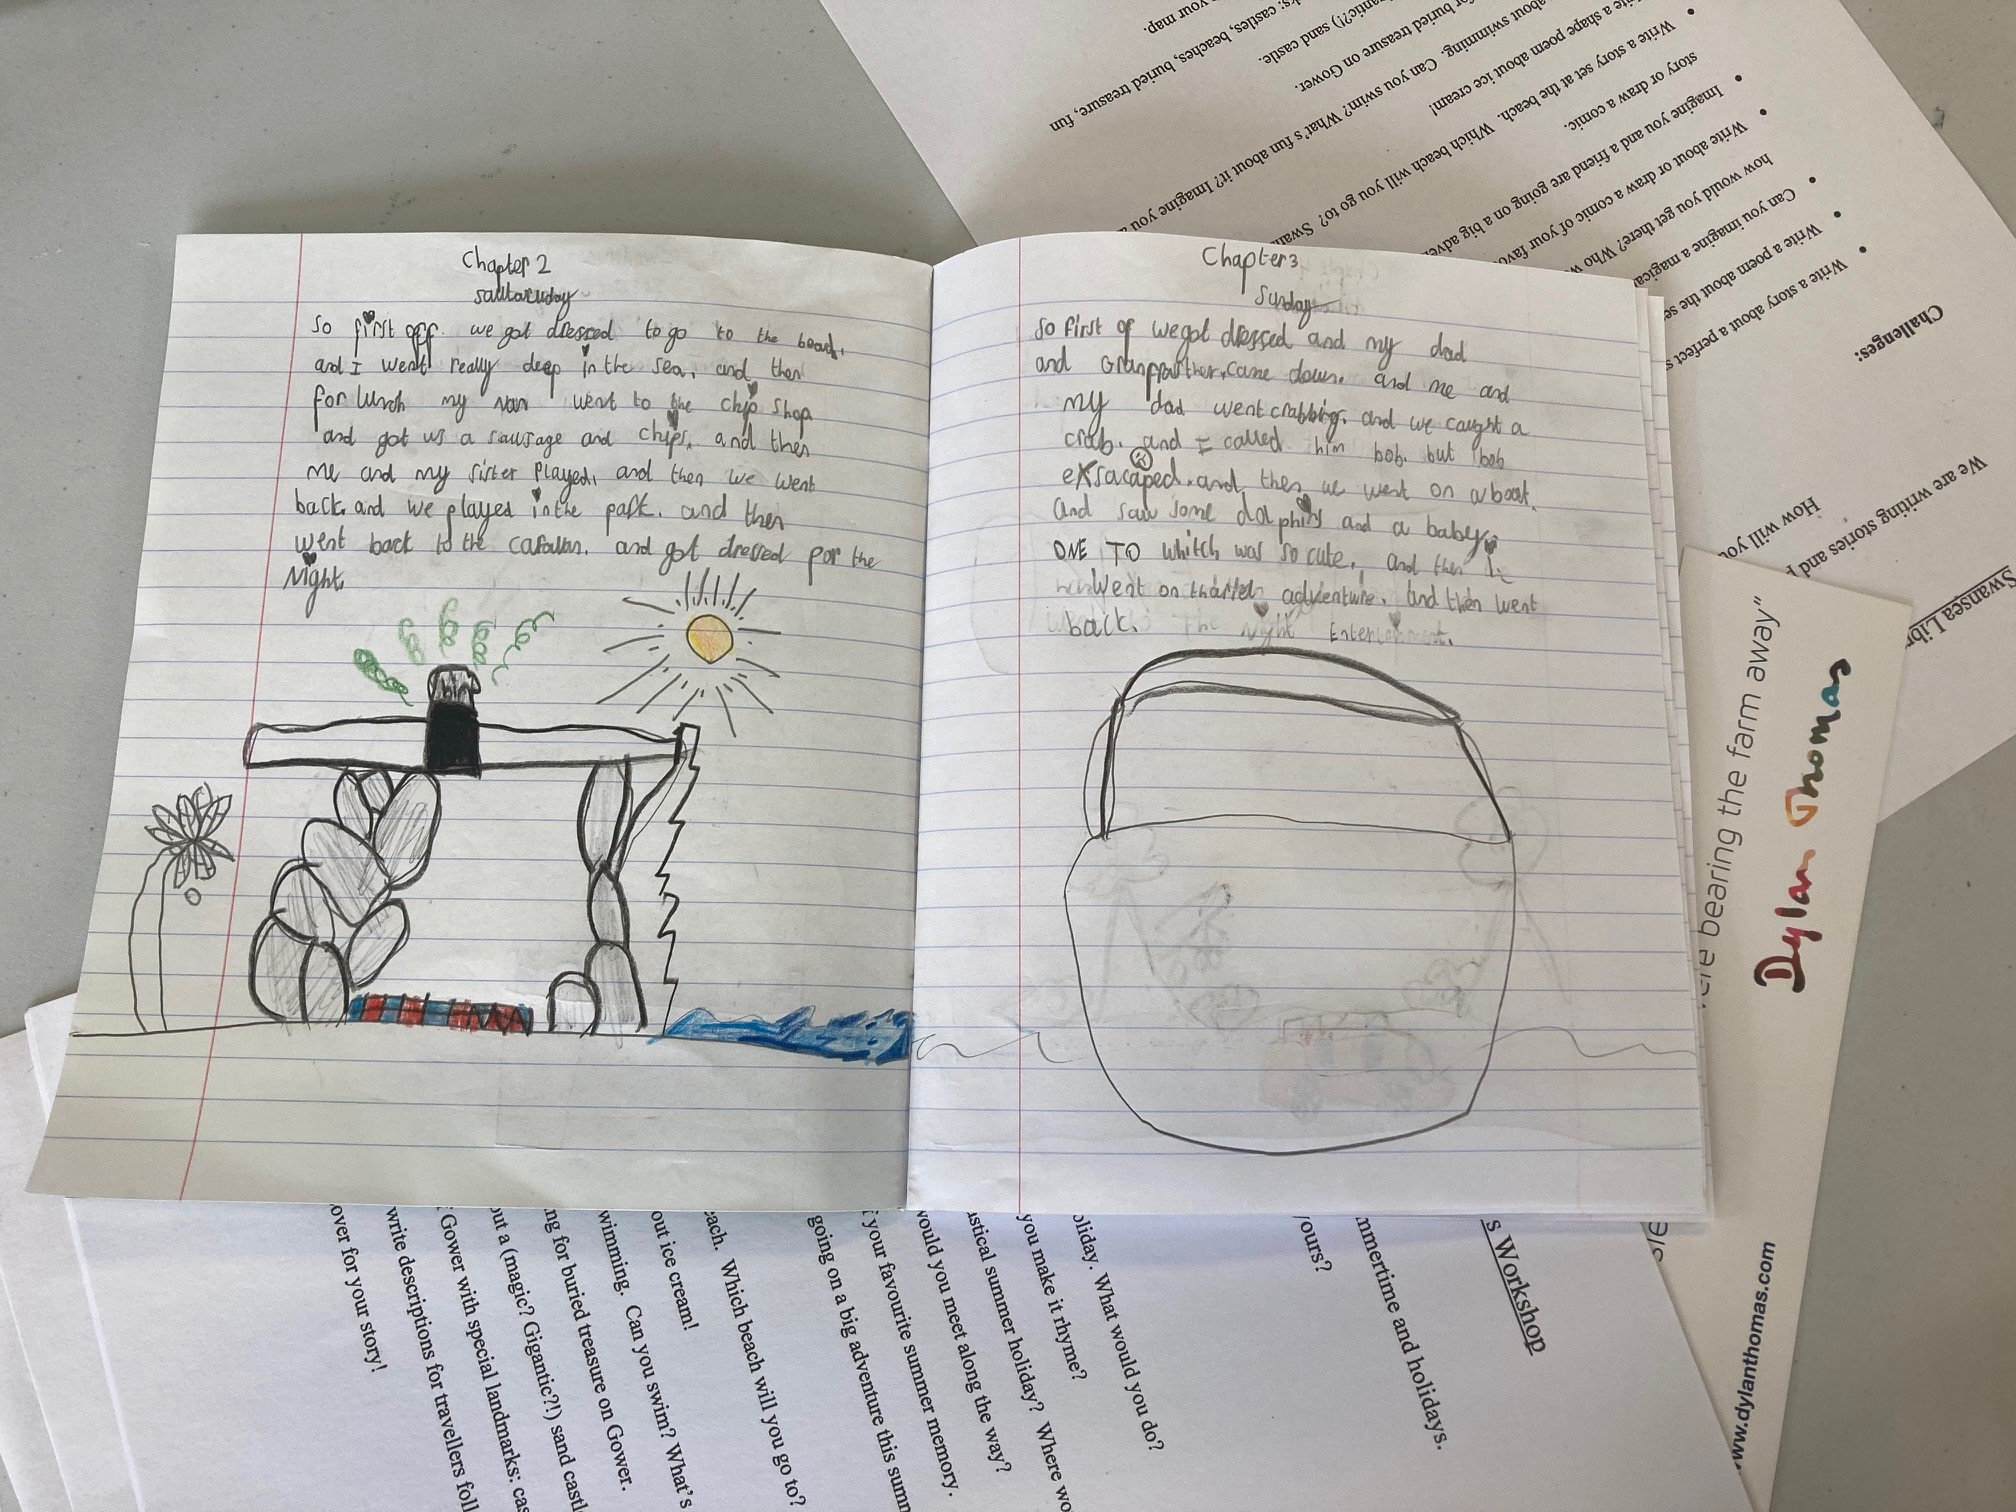 Chapter 2
sautauuday
So first off. we got dressed to go to the beach.
and I went really deep in the sea. and then
for lunch my nan went to the chip shop
and got us a sausage and chips. and then
me and my sister played, and then we went
back. and we played in the park. and then
went back to the caravan. and got dressed for the
Night.
Chapter 3
Sunday
So first of we got dressed and my dad
and Granffarther. came down. and me and
my dad went crabbing. and we caught a
crab. and I called him bob. but bob
exsacaped. and then we went on a boat.
and saw some dolphins and a baby
ONE TO whitch was so cute. and then
went on adventure. and then went
back. the Night Entertainment.
Swansea Libr
We are writing stories and p
How will you
Challenges:
Write a story about a perfect s
Write a poem about the se
Can you imagine a magica
how would you get there? Who w
Write about or draw a comic of your favo
Imagine you and a friend are going on a big adve
story or draw a comic.
Write a story set at the beach. Which beach will you go to? Swan
ite a shape poem about ice cream!
about swimming. Can you swim? What's fun about it? Imagine you
for buried treasure on Gower.
antic?!) sand castle.
ks: castles, beaches, buried treasure, fun
n your map.
ere bearing the farm away"
Dylan Thomas
www.dylanthomas.com
s Workshop
mmertime and holidays.
yours?
oliday. What would you do?
you make it rhyme?
astical summer holiday? Where wo
would you meet along the way?
f your favourite summer memory.
going on a big adventure this summ
each. Which beach will you go to?
out ice cream!
wimming. Can you swim? What's
ng for buried treasure on Gower.
out a (magic? Gigantic?!) sand castl
f Gower with special landmarks: cas
write descriptions for travellers foll
over for your story!